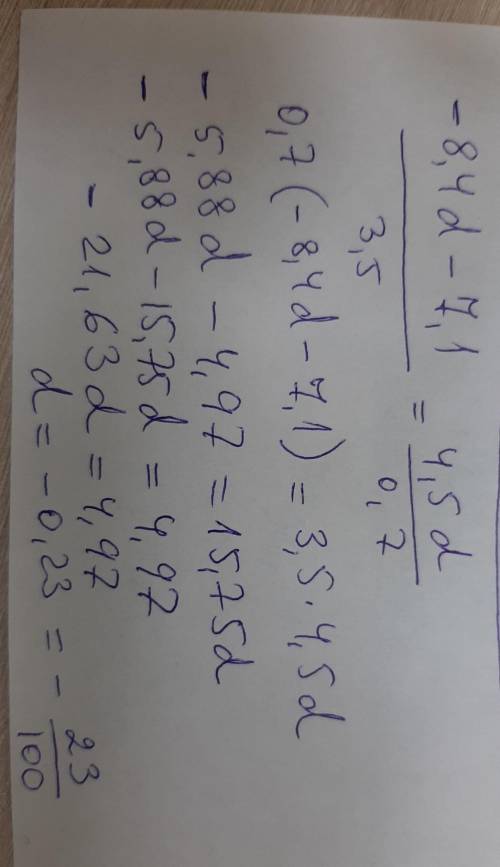 -8,4d - 7,1 / 3,5 = 4,5d / 0,7
0,7(-8,4d - 7,1) = 3,5 · 4,5d
-5,88d - 4,97 = 15,75d
-5,88d - 15,75d = 4,97
-21,63d = 4,97
d = -0,23 = - 23/100